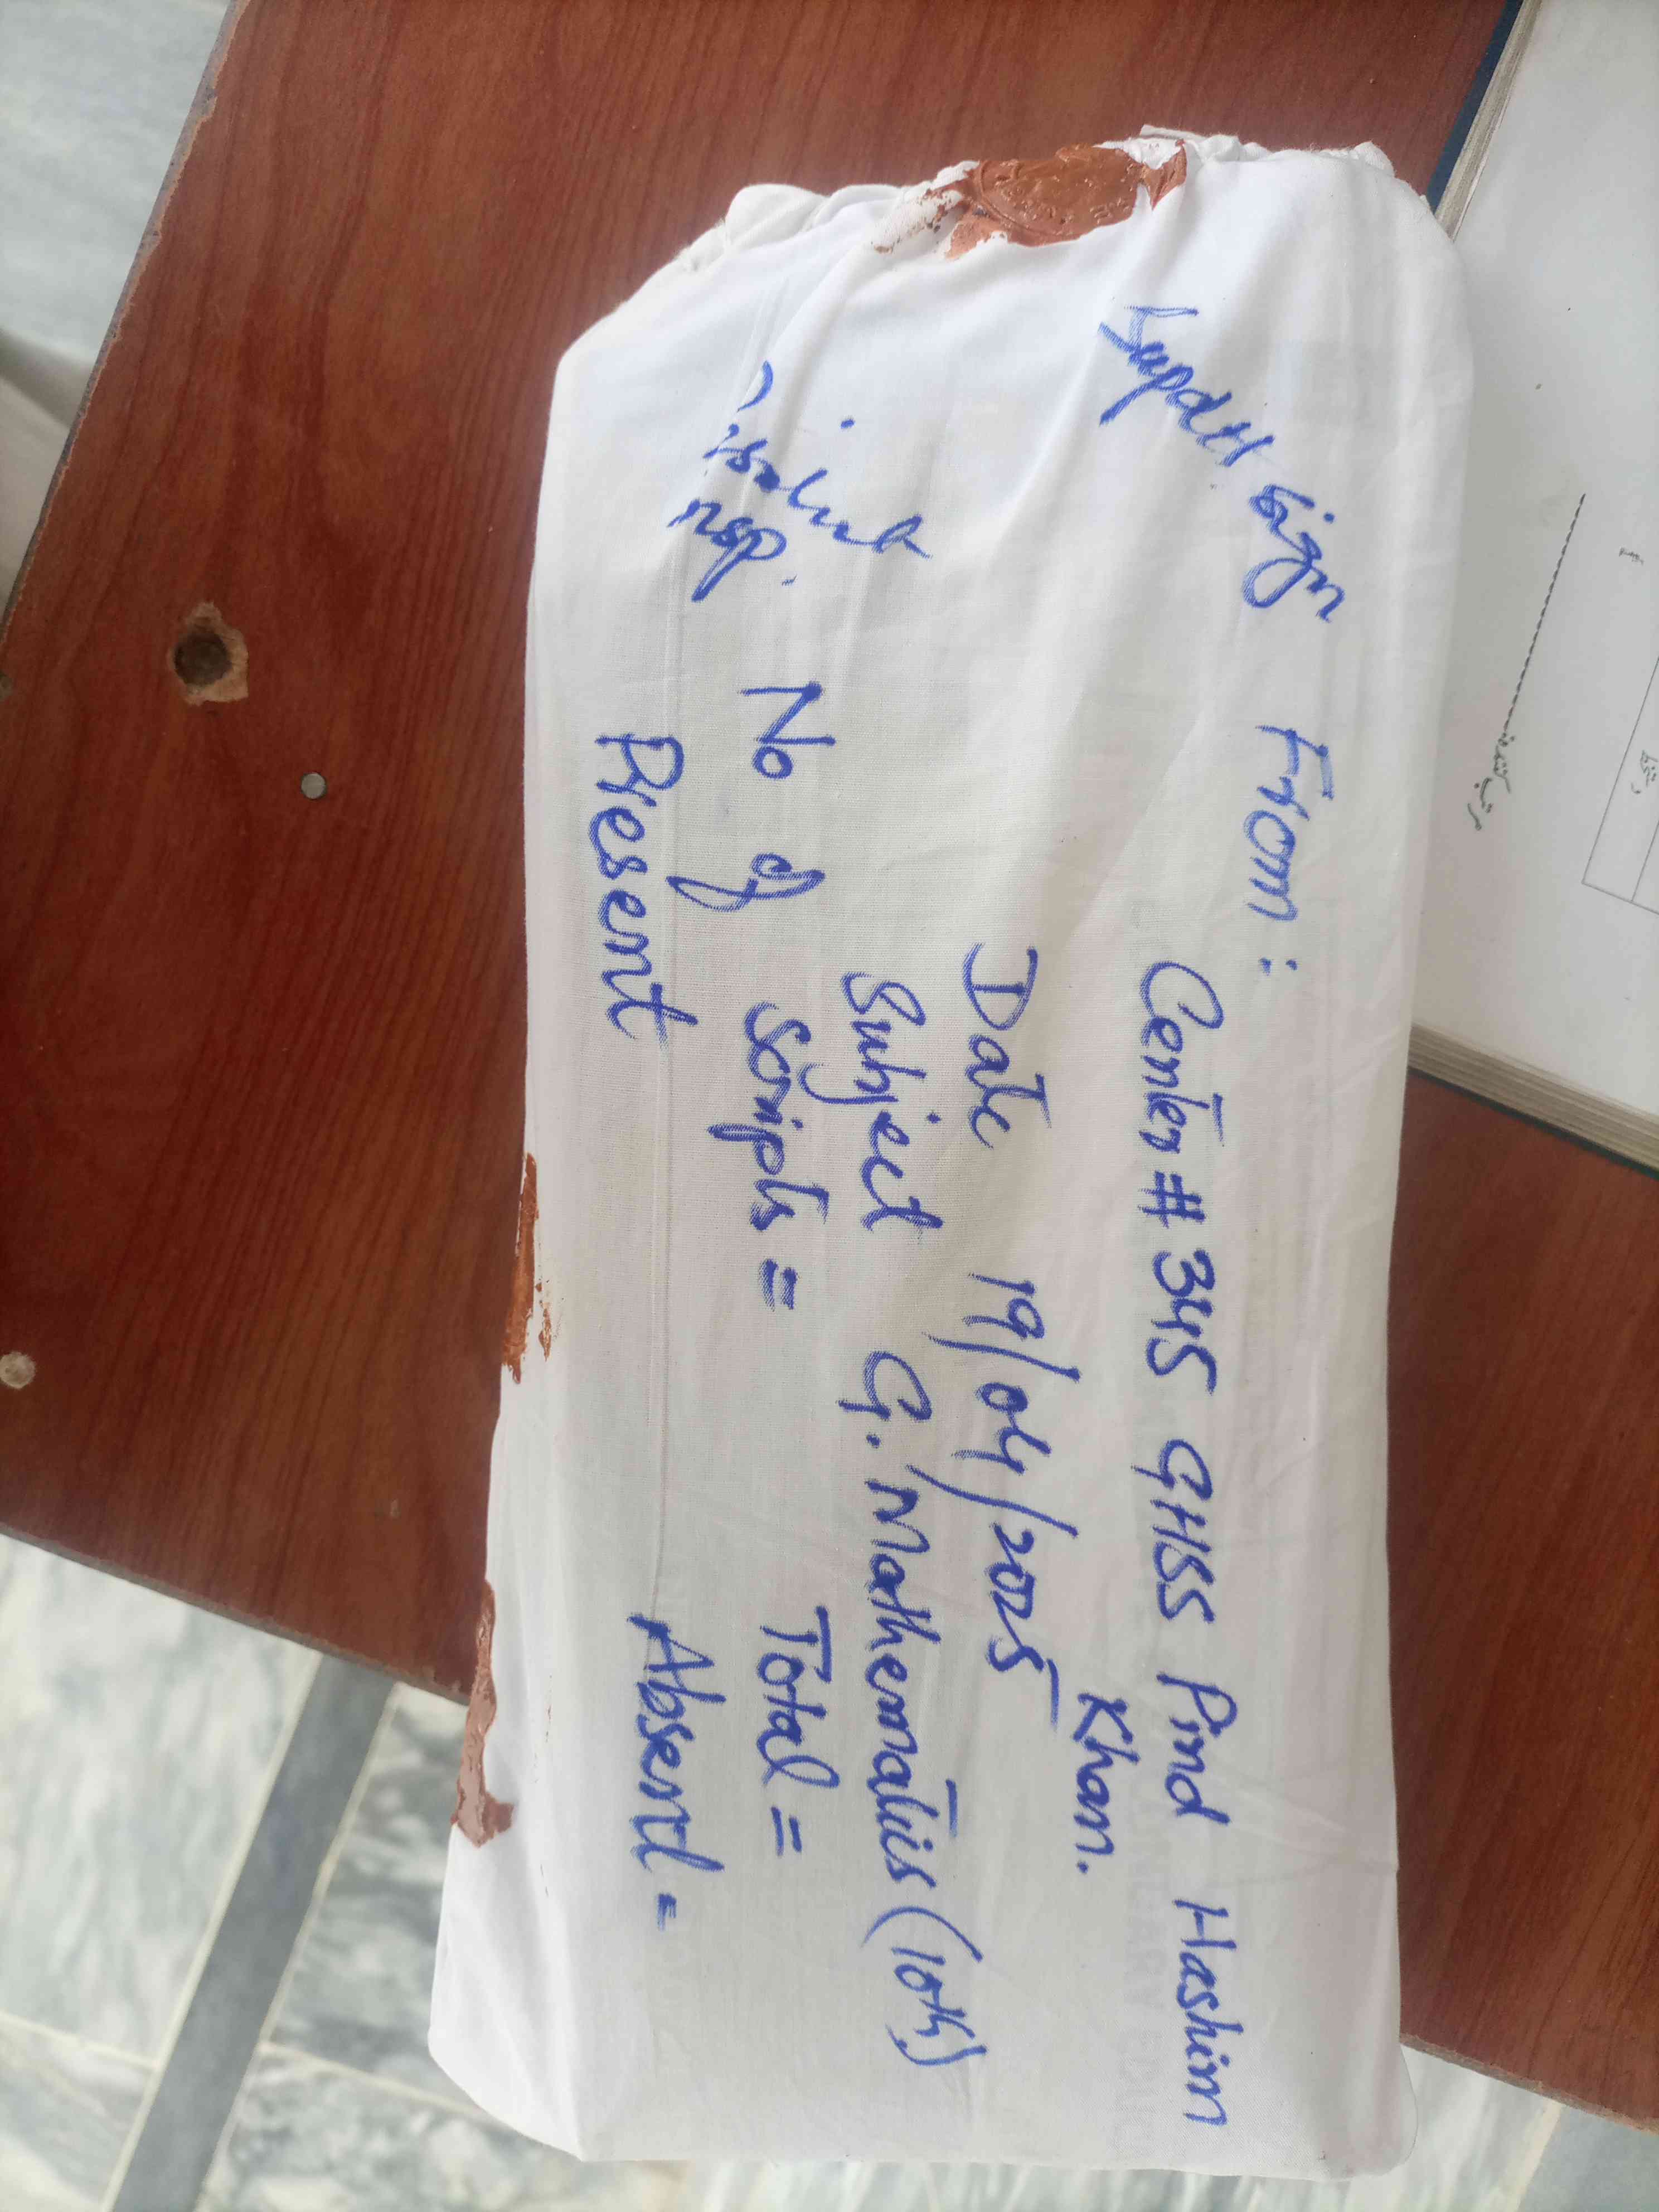 Supdtt Sign
From :
Center # 345 GHSS Pind Hashim
Khan.
Date 19/04/2025
Subject G. Mathematics (10th)
No of Scripts = Total =
Present Absent =